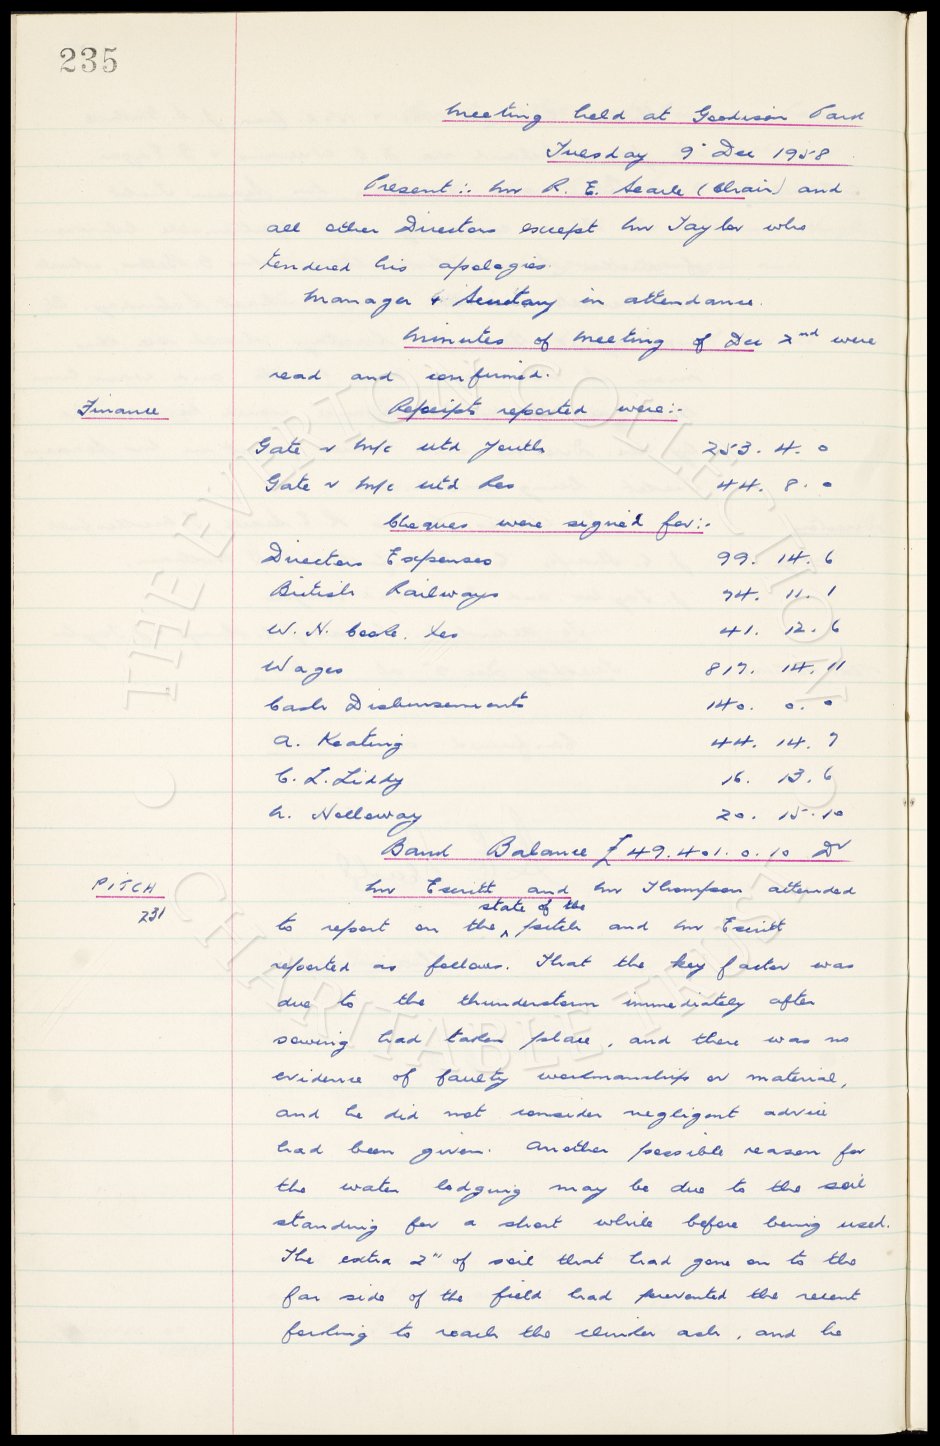 235
Meeting held at Goodison Park
Tuesday 9 Dec 1958
Present:- Mr R. E. Searle (Chair) and
all other Directors except Mr Taylor who
tendered his apologies.
Manager & Secretary in attendance.
Minutes of Meeting of Dec 2nd were
read and confirmed.
Finance
Receipts reported were:-
Gate v M/c utd Youth 253. 4. 0
Gate v M/c utd Res 44. 8. 0
Cheques were signed for:-
Directors Expenses 99. 14. 6
British Railways 74. 11. 1
W. H. 41. 12. 6
Wages 817. 14. 11
Cash Disbursements 140. 0. 0
A. Keating 44. 14. 7
C. L. Liddy 16. 13. 6
Holloway 20. 15. 10
Bank Balance £49.401.0.10 Dr
PITCH
231
Mr Escritt and Mr Thompson attended
to report on the state of the pitch and Mr Escritt
reported as follows. That the key factor was
due to the thunderstorm immediately after
sowing had taken place, and there was no
evidence of faulty workmanship or material,
and he did not consider negligent advice
had been given. Another possible reason for
the water lodging may be due to the soil
standing for a short while before being used.
The extra 2" of soil that had gone on to the
far side of the field had prevented the recent
forking to reach the clinker ash, and he
© THE EVERTON COLLECTION
CHARITABLE TRUST